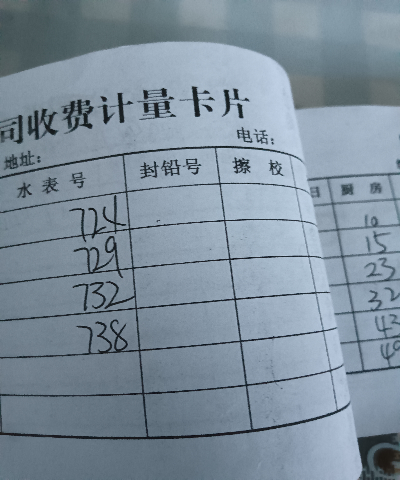 司收费计量卡片
地址: 电话:
水表号 封铅号 擦校
724
729
732
738
日 厨房
10
15
23
32
43